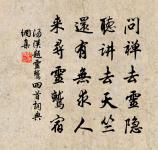 问禅去灵隐
听讲去天竺
还有无求人
来寻灵鹫宿
汤汉题灵鹫四首词典
网集